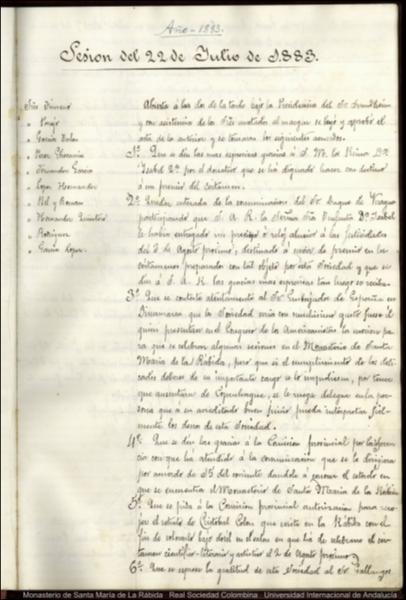 Año - 1883.
Sesion del 22 de Julio de 1883.
Sres
" García
" Hernandez
" Rodriguez
" García Lopez
Abierta á las dos de la tarde bajo la Presidencia del Sr.
y con asistencia de los Sres anotados al margen se leyó y aprobó el
acta de la anterior y se tomaron los siguientes acuerdos.
1º. Que se den las mas expresivas gracias á S. M. la Reina Dª
Isabel 2ª por el donativo que se ha dignado hacer con destino
á un premio del certámen.
2º. Quedar enterada de la comunicacion del Sr Duque de Veragua
participando que S. A. R. la Serma Sra Infanta Dª Isabel
le habia entregado un precioso
del 2 de Agosto proximo, destinado á servir de premio en los
certámenes preparados con tal objeto por esta Sociedad y que se
den á S. A. R. las gracias mas expresivas tan luego se reciba.
3º. Que se conteste atentamente al Sr Embajador de España en
Dinamarca que la Sociedad veria con muchisimo gusto fuese él
quien presentase en el Congreso de los Americanistas la mocion para
que se celebren algunas sesiones en el Monasterio de Santa
Maria de la Rábida, pero que si el cumplimiento de los delicados
deberes de su importante cargo se lo impidiesen, por tener
que ausentarse de Copenhague, se le ruega delegue en la persona
que a su acreditado buen juicio pueda interpretar fielmente
los deseos de esta Sociedad.
4º. Que se den las gracias á la Comision provincial por la
con que ha atendido á la comunicacion que se le dirigiera
por acuerdo de 15 del corriente dandole á conocer el estado en
que se encuentra el Monasterio de Santa Maria de la Rábida
5º. Que se pida á la Comision provincial autorizacion para
el retrato de Cristobal Colon que existe en la Rábida con el
fin de colocarlo bajo dosel en el salon en que ha de celebrarse el certamen
cientifico-literario y artistico el 2 de Agosto proximo
6º. Que se exprese la gratitud de esta Sociedad al Sr
Monasterio de Santa María de La Rábida : Real Sociedad Colombina : Universidad Internacional de Andalucía